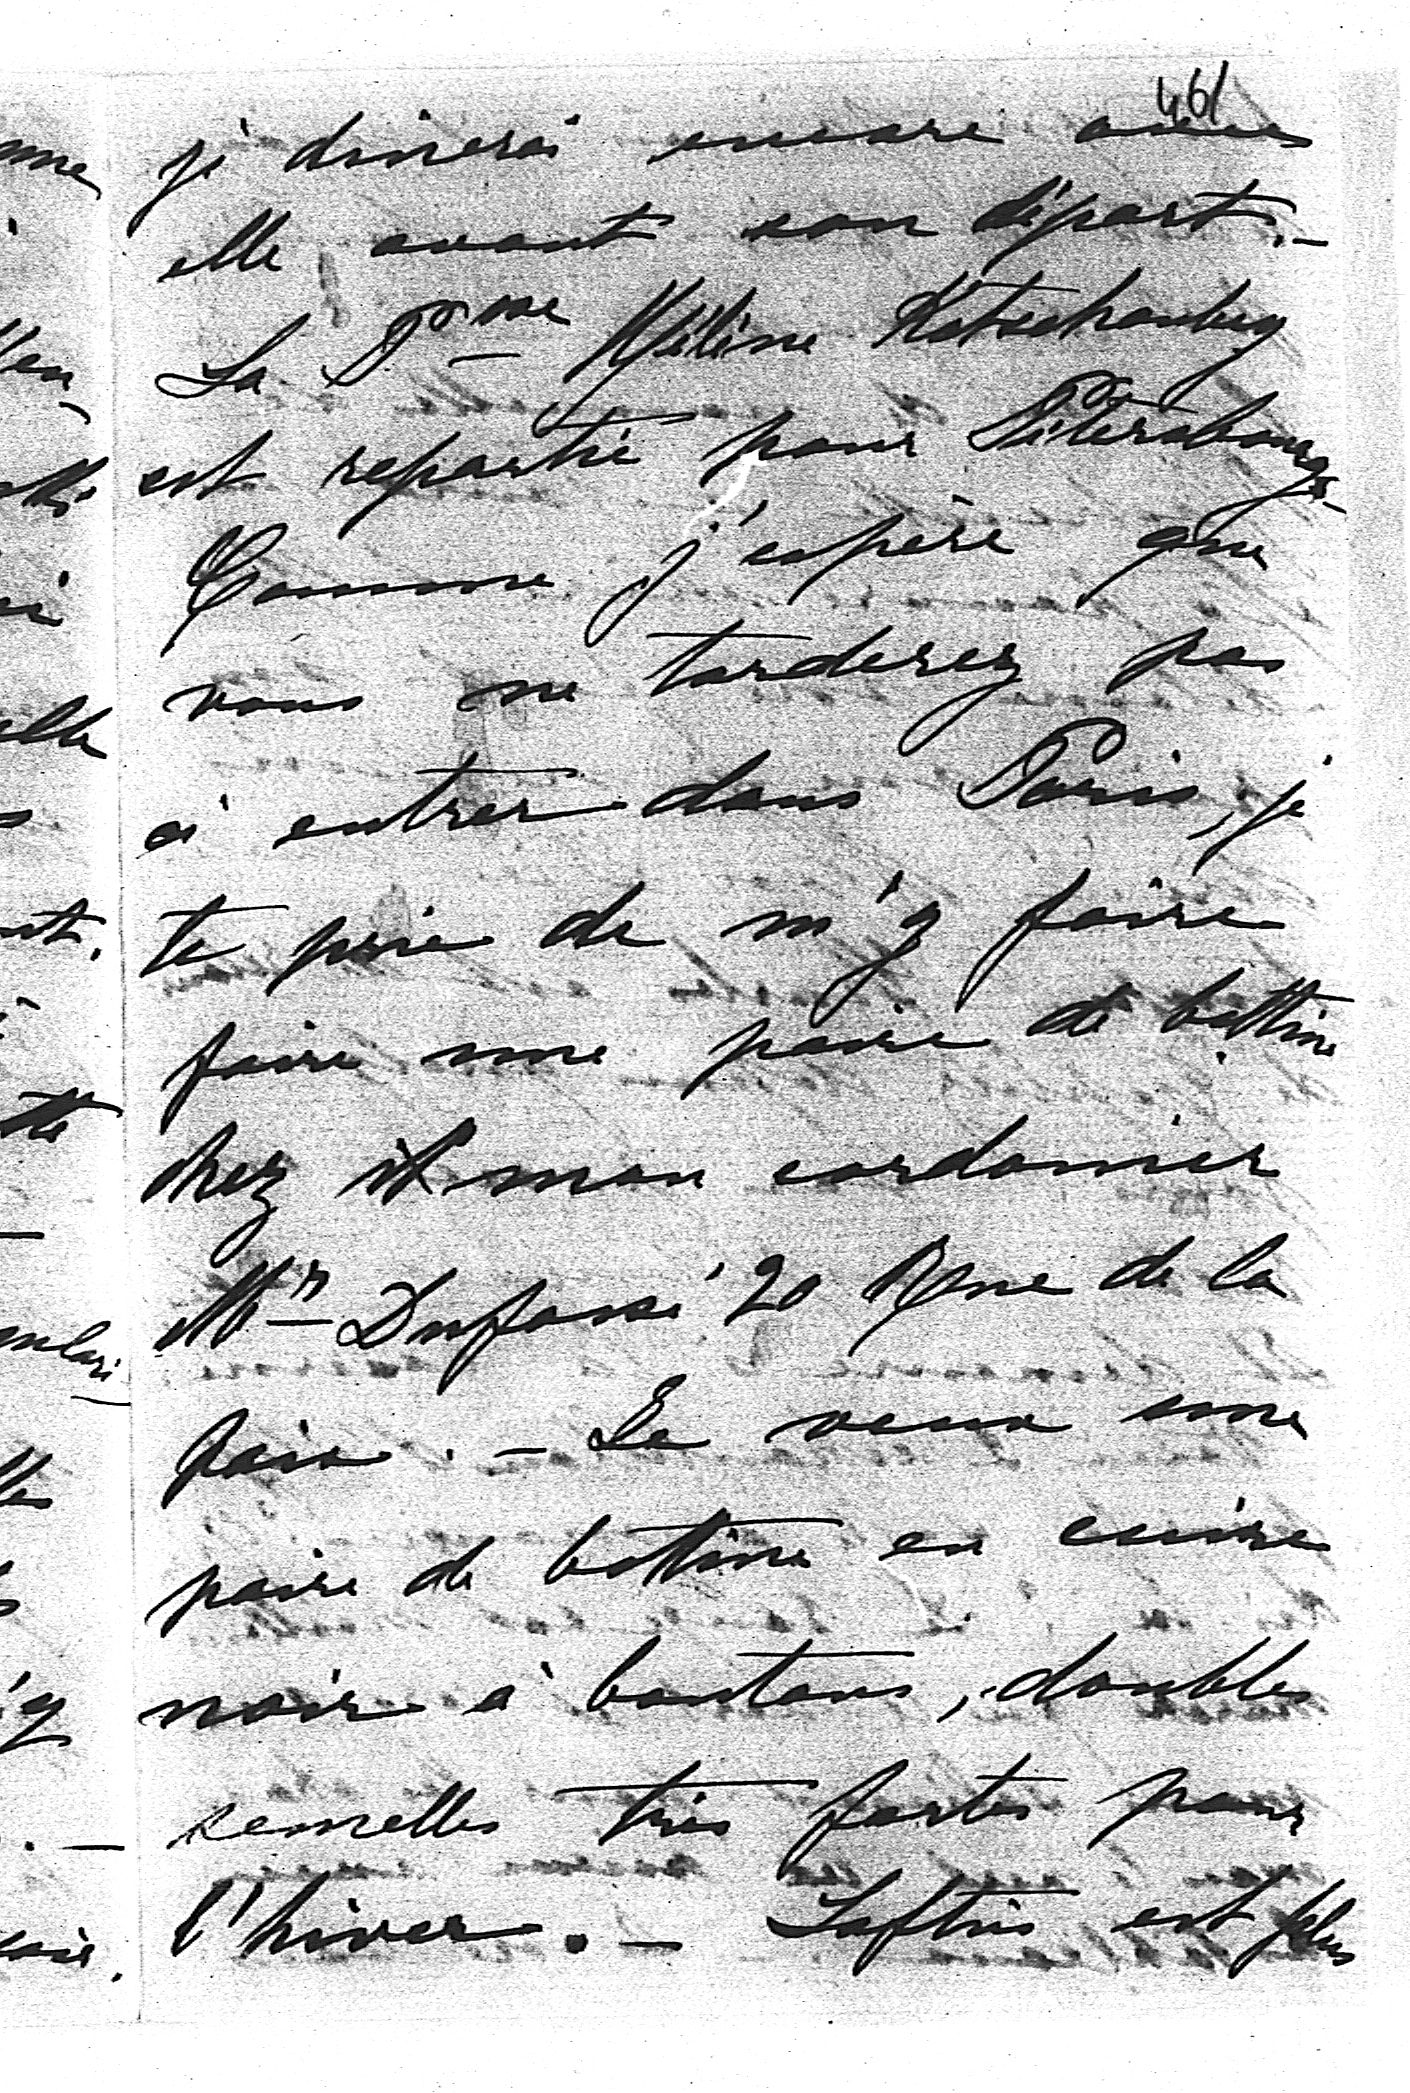 461
je dinerai encore avec
elle avant son départ.—
La Psse Hélène Kotschoubey
est repartie pour Pétersbourg.—
Comme j'espère que
vous ne tarderez pas
à entrer dans Paris, je
te prie de m'y faire
faire une paire de bottine
chez mon cordonier
Mr Dufossé 20 Rue de la
paix. — Je veux une
paire de bottine en cuire
noir à boutons, doubles
semelles très fortes pour
l'hiver. — est plus